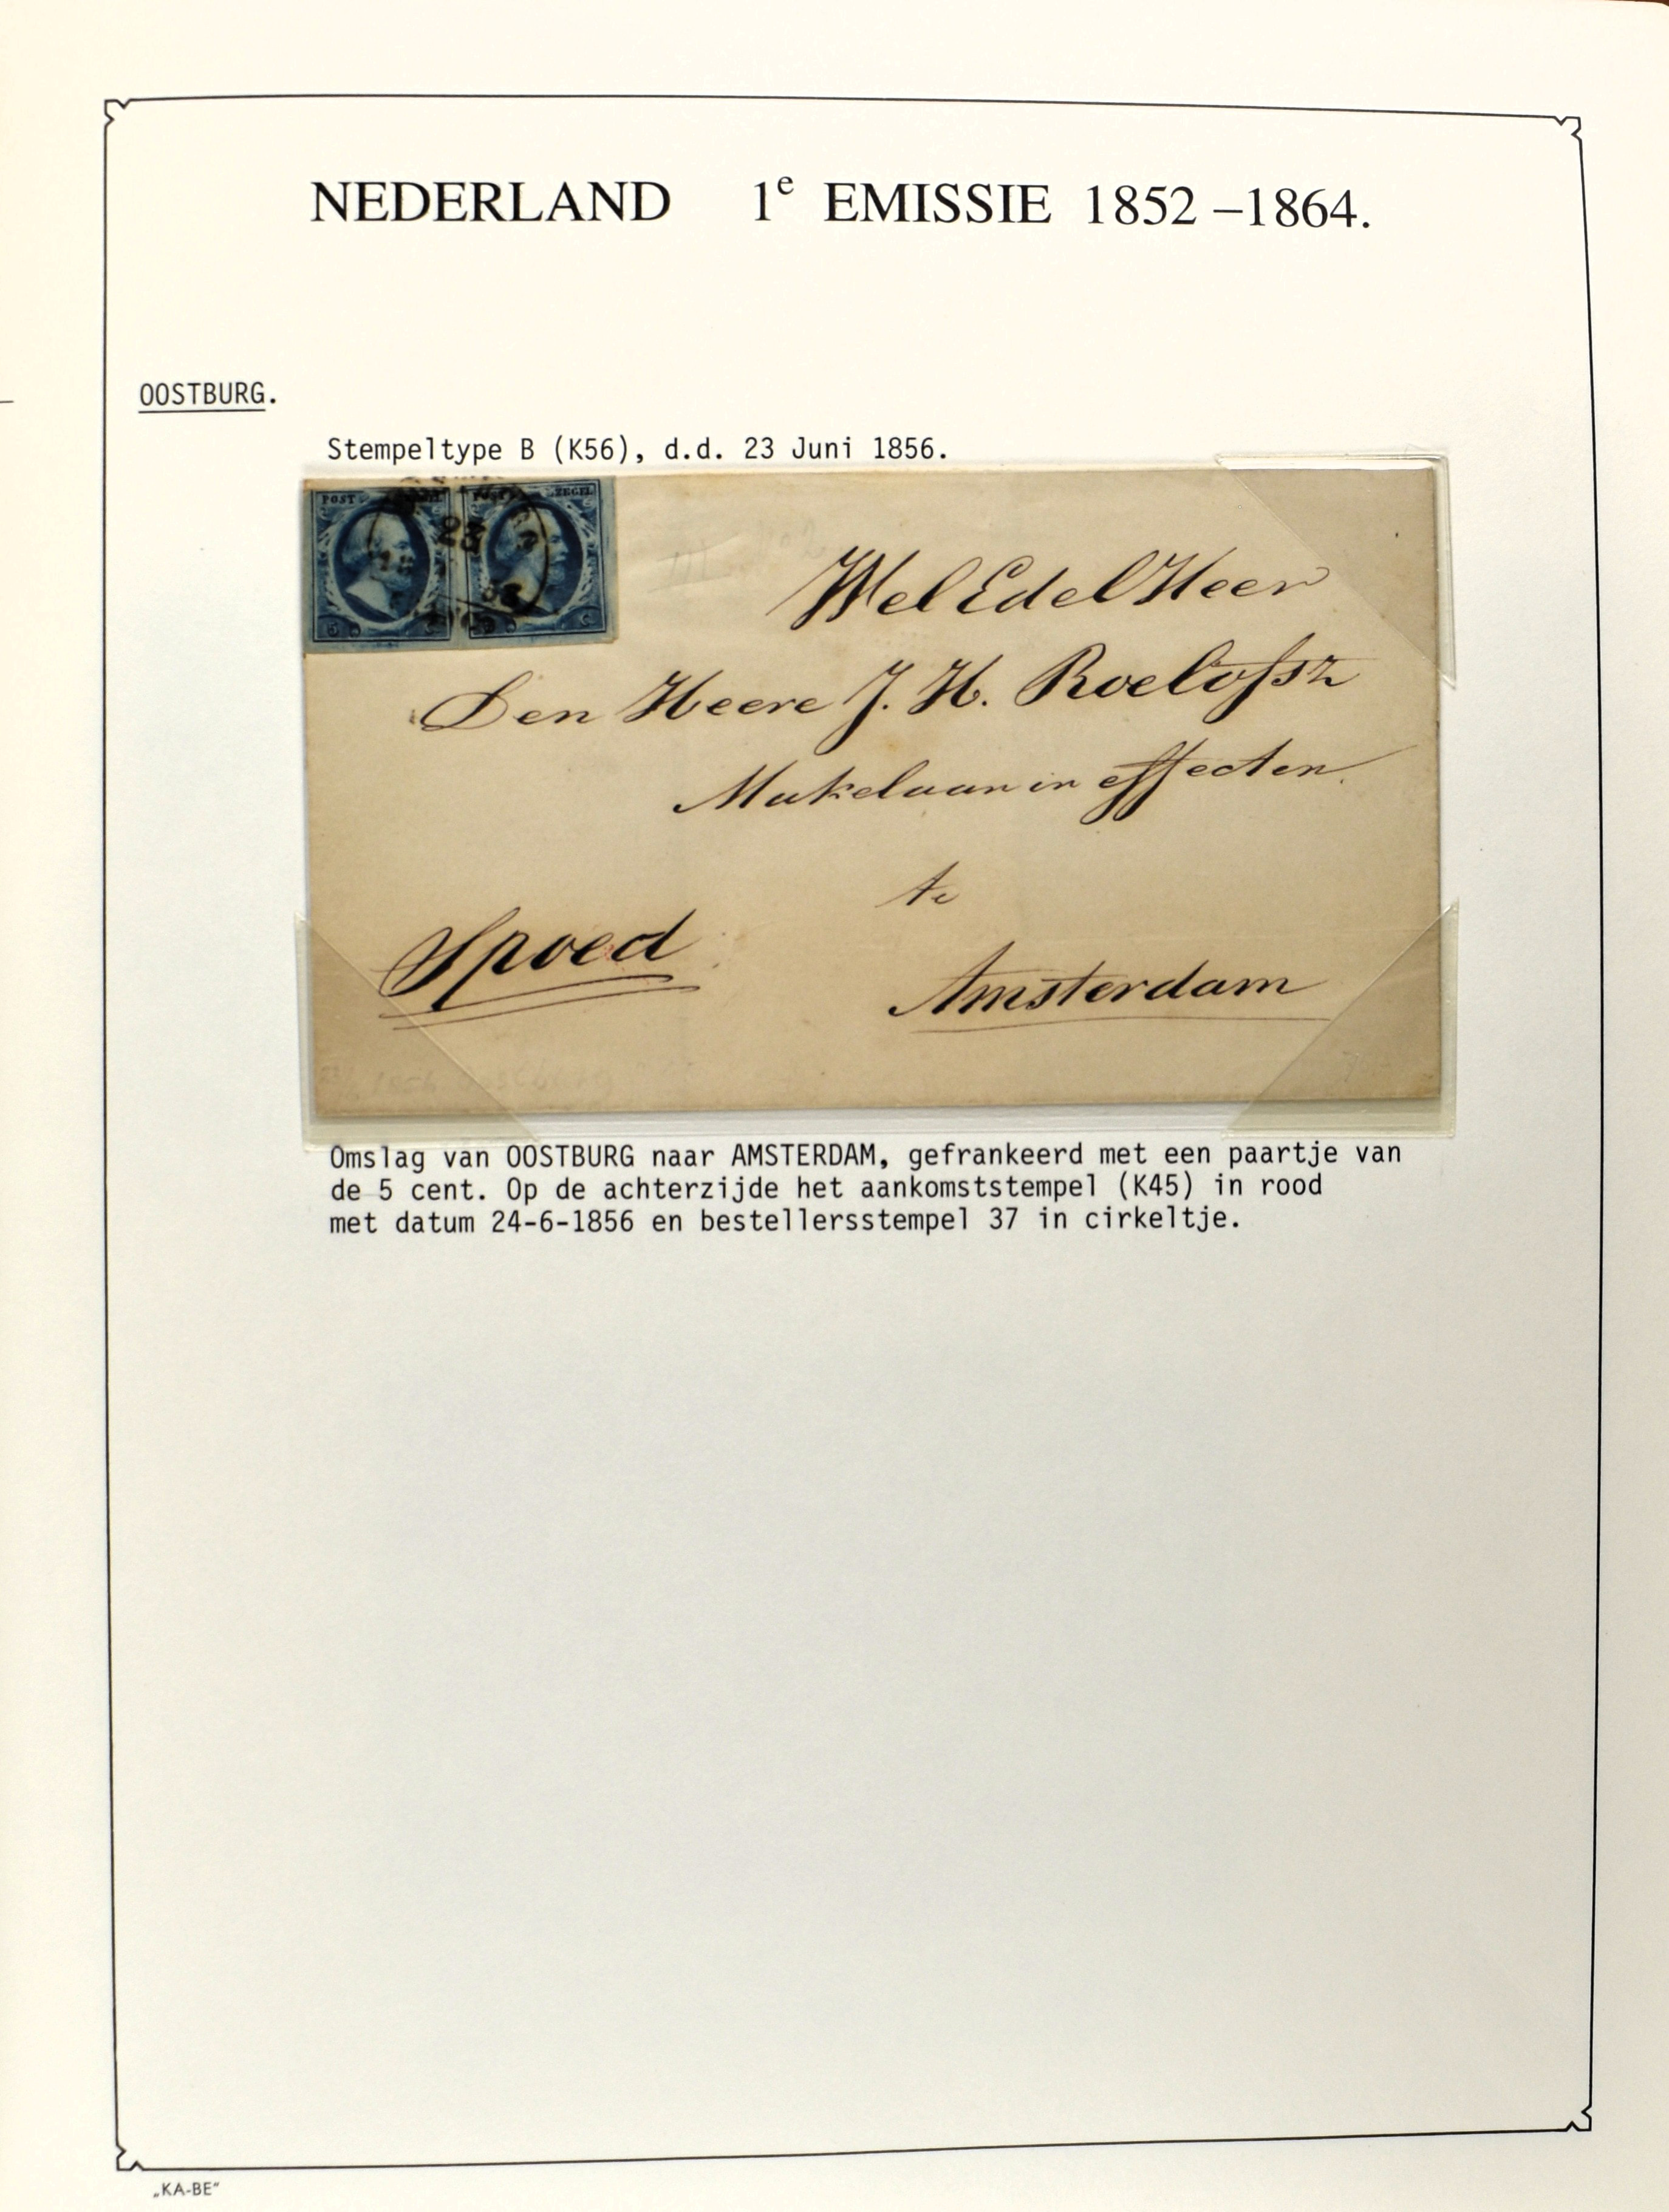 NEDERLAND 1e EMISSIE 1852 –1864.
OOSTBURG.
Stempeltype B (K56), d.d. 23 Juni 1856.
POST
POST ZEGEL
23
5 C
5 C
Wel Edel Heer
Den Heere J. H. Roelofsz
Makelaar in effecten.
te
Spoed
Amsterdam
Omslag van OOSTBURG naar AMSTERDAM, gefrankeerd met een paartje van
de 5 cent. Op de achterzijde het aankomststempel (K45) in rood
met datum 24-6-1856 en bestellersstempel 37 in cirkeltje.
„KA-BE"